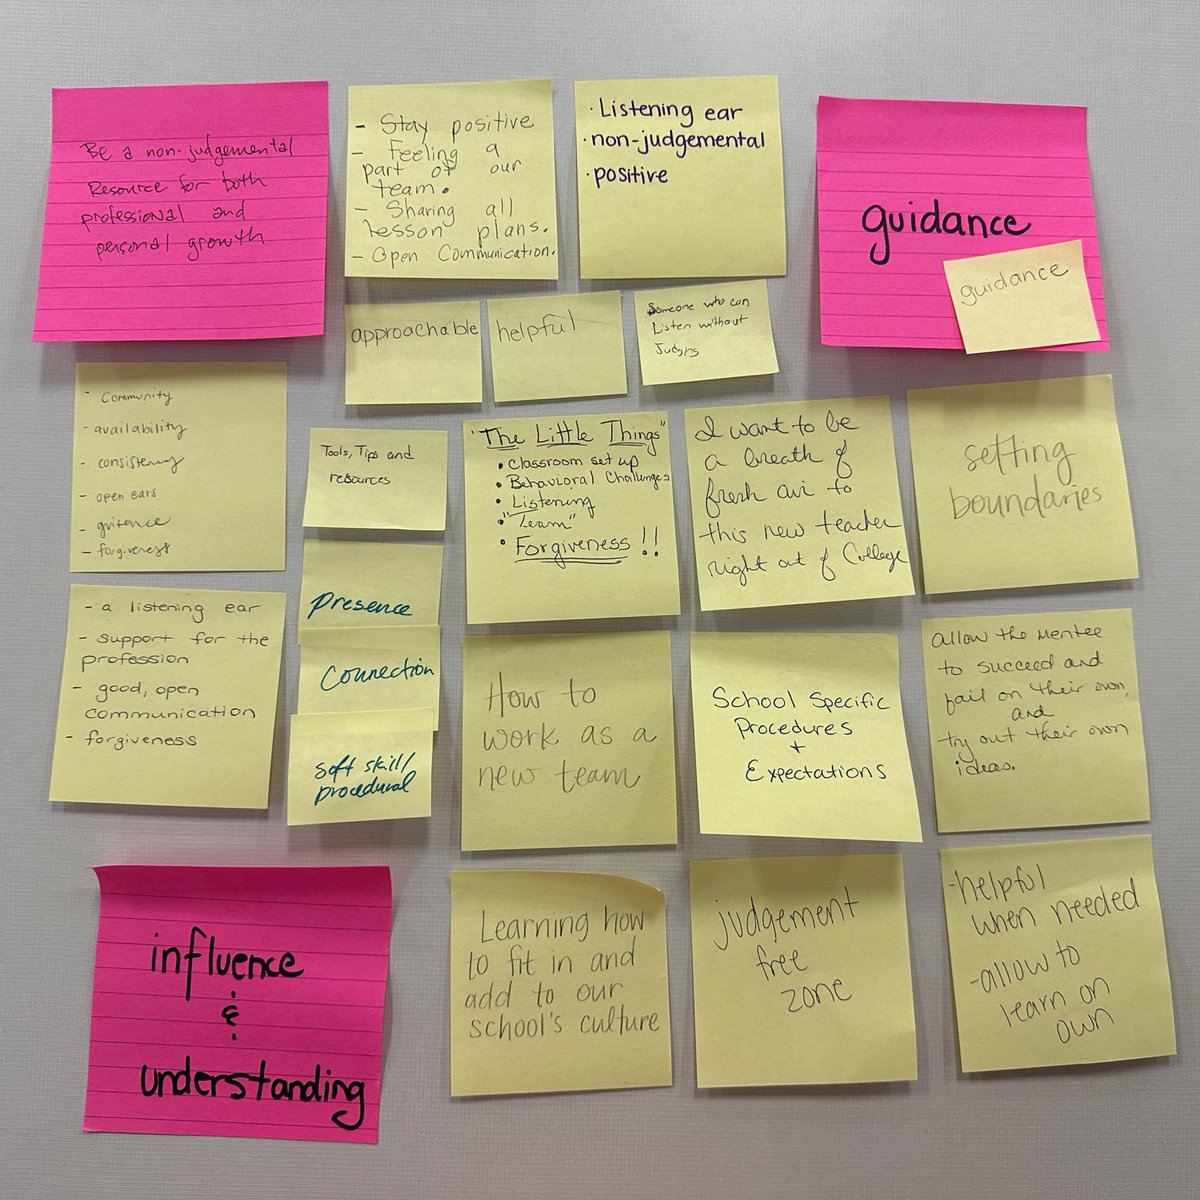 Be a non-judgemental
Resource for both
professional and
personal growth
- Stay positive
- Feeling a
part of our
team.
- Sharing all
lesson plans.
- Open Communication.
· Listening ear
· non-judgemental
· positive
guidance
guidance
approachable
helpful
Someone who can
Listen without
Judging
- Community
- availability
- consistency
- open ears
- guidence
- forgiveness
Tools, Tips and
resources
"The Little Things"
• Classroom set up
• Behavioral Challenges
• Listening
• "Team"
• Forgiveness !!
I want to be
a breath of
fresh air to
this new teacher
right out of College
setting
boundaries
- a listening ear
- support for the
profession
- good, open
communication
- forgiveness
presence
connection
soft skill/
procedural
How to
work as a
new team
School Specific
Procedures
+
Expectations
allow the mentee
to succeed and
fail on their own,
and
try out their own
ideas.
influence
&
understanding
Learning how
to fit in and
add to our
school's culture
judgement
free
zone
- helpful
when needed
- allow to
learn on
own